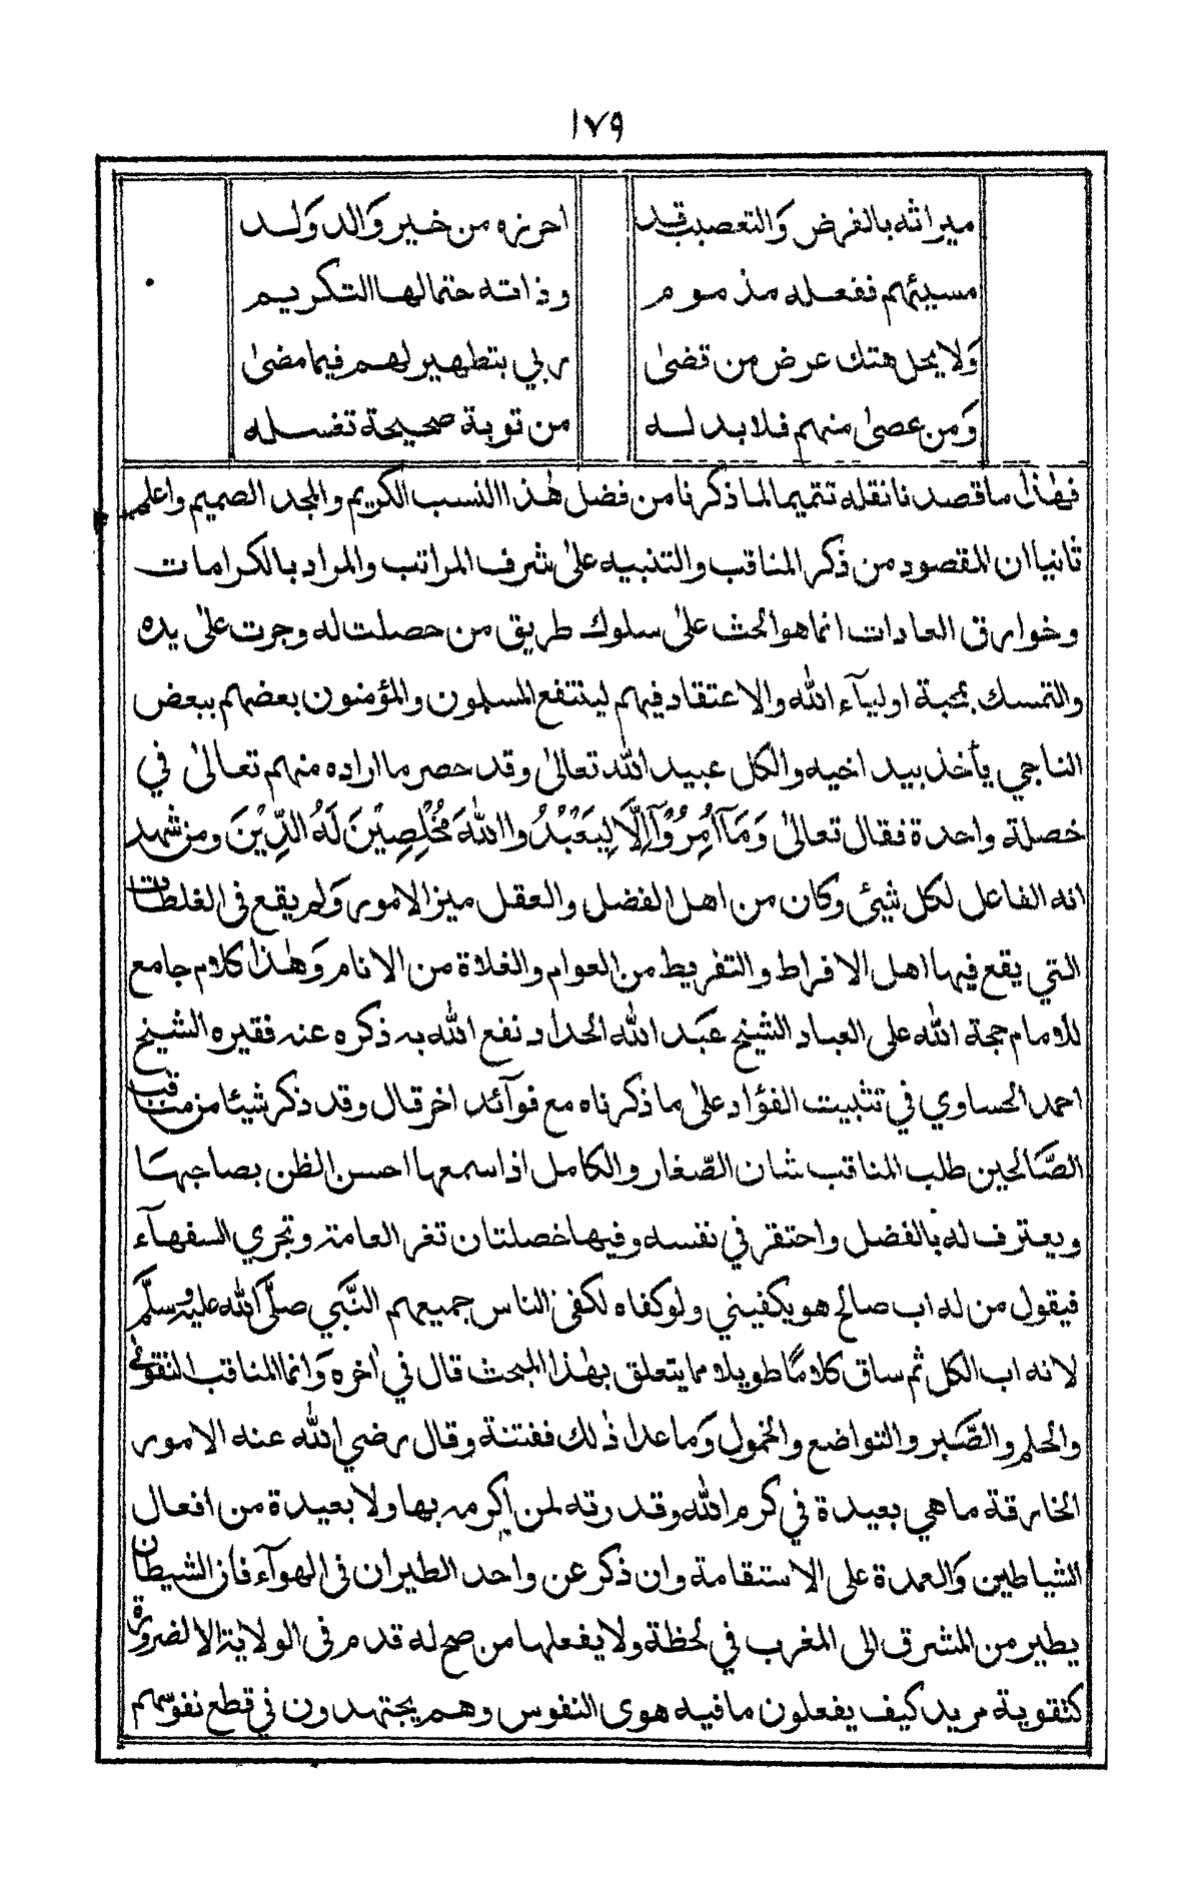 ١٧٩
ميراثه بالفرض والتعصيب قد احرزه من خير وَالد وَلد
مسيئهم ففعله مذموم وذاته حتما لها التكريم
وَلا يحل هتك عرض من قضىٰ ربي بتطهير لهم فيما مضىٰ
وَمن عصىٰ منهم فلا بد له من توبة صحيحة تغسله
فهٰذا ما قصدنا نقله تتميما لما ذكرنا من فضل هٰذا النسب الكريم والمجد الصميم واعلم
ثانيا ان المقصود من ذكر المناقب والتنبيه علىٰ شرف المراتب والمراد بالكرامات
وخوارق العادات انما هو الحث علىٰ سلوك طريق من حصلت له وجرت علىٰ يده
والتمسك بمحبة اوليآء اللّٰه والاعتقاد فيهم لينتفع المسلمون والمؤمنون بعضهم ببعض
الناجي يأخذ بيد اخيه والكل عبيد اللّٰه تعالىٰ وقد حصر ما اراده منهم تعالىٰ في
خصلة واحدة فقال تعالىٰ وَمَآ اُمِرُوْٓا اِلَّا لِيَعْبُدُوا اللّٰهَ مُخْلِصِيْنَ لَهُ الدِّيْنَ ومن شهد
انه الفاعل لكل شيئ وكان من اهل الفضل والعقل ميز الامور وَلم يقع فى الغلطات
التي يقع فيها اهل الافراط والتفريط من العوام والغلاة من الانام وَهٰذا كلام جامع
للامام حجة اللّٰه على العباد الشيخ عبَد اللّٰه الحداد نفع اللّٰه به ذكره عنه فقيره الشيخ
احمد الحساوي في تثبيت الفؤاد علىٰ ما ذكرناه مع فوآئد اخر قال وقد ذكر شيئا من مناقب
الصَّالحين طلب المناقب شان الصّغار والكامل اذا سمعها احسن الظن بصاحبهَا
ويعترف له بالفضل واحتقر في نفسه وفيها خصلتان تغر العامة وتجري السفهآء
فيقول من له اب صالح هو يكفيني ولو كفاه لكفىٰ الناس جميعهم النَّبي صلَّى اللّٰه عليه وسلَّم
لانه اب الكل ثم ساق كلامًا طويلا مما يتعلق بهٰذا المبحث قال في اٰخره وَانما المناقب التقوىٰ
والحلم والصَّبر والتواضع والخمول وَما عدا ذٰلك ففتنة وقال رضي اللّٰه عنه الامور
الخارقة ما هي بعيدة في كرم اللّٰه وقدرته لمن اكرمه بها ولا بعيدة من افعال
الشياطين وَالعمدة على الاستقامة وان ذكر عن واحد الطيران فى الهوآء فان الشيطان
يطير من المشرق الى المغرب في لحظة ولا يفعلها من صح له قدم فى الولاية الا لضرورة
كتقوية مريد كيف يفعلون ما فيه هوى النفوس وهم يجتهدون في قطع نفوسهم